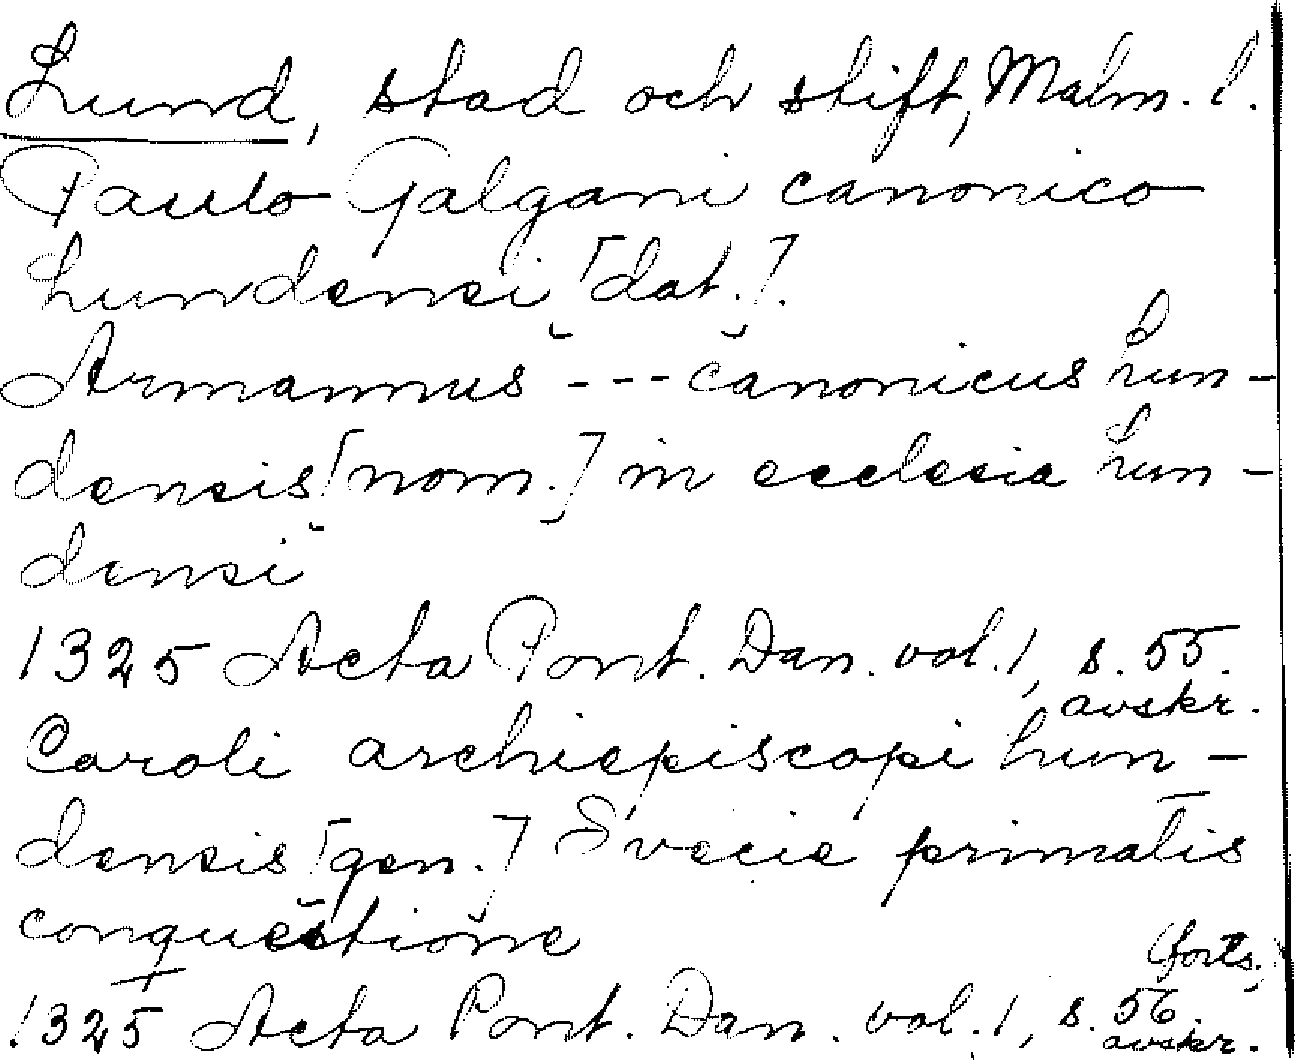 Lund, stad och stift, Malm. l.
Paulo Galgani canonico
Lundensi [dat.].
Armannus --- canonicus Lun-
densis [nom.] in ecclesia Lun-
densi
1325 Acta Pont. Dan. vol. 1, s. 55.
avskr.
Caroli archiepiscopi Lun-
densis [gen.] Svecie primatis
conquestione
(forts.
1325 Acta Pont. Dan. vol. 1, s. 56.
avskr.